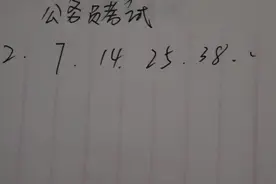 公务员考试
2. 7. 14. 25. 38. .